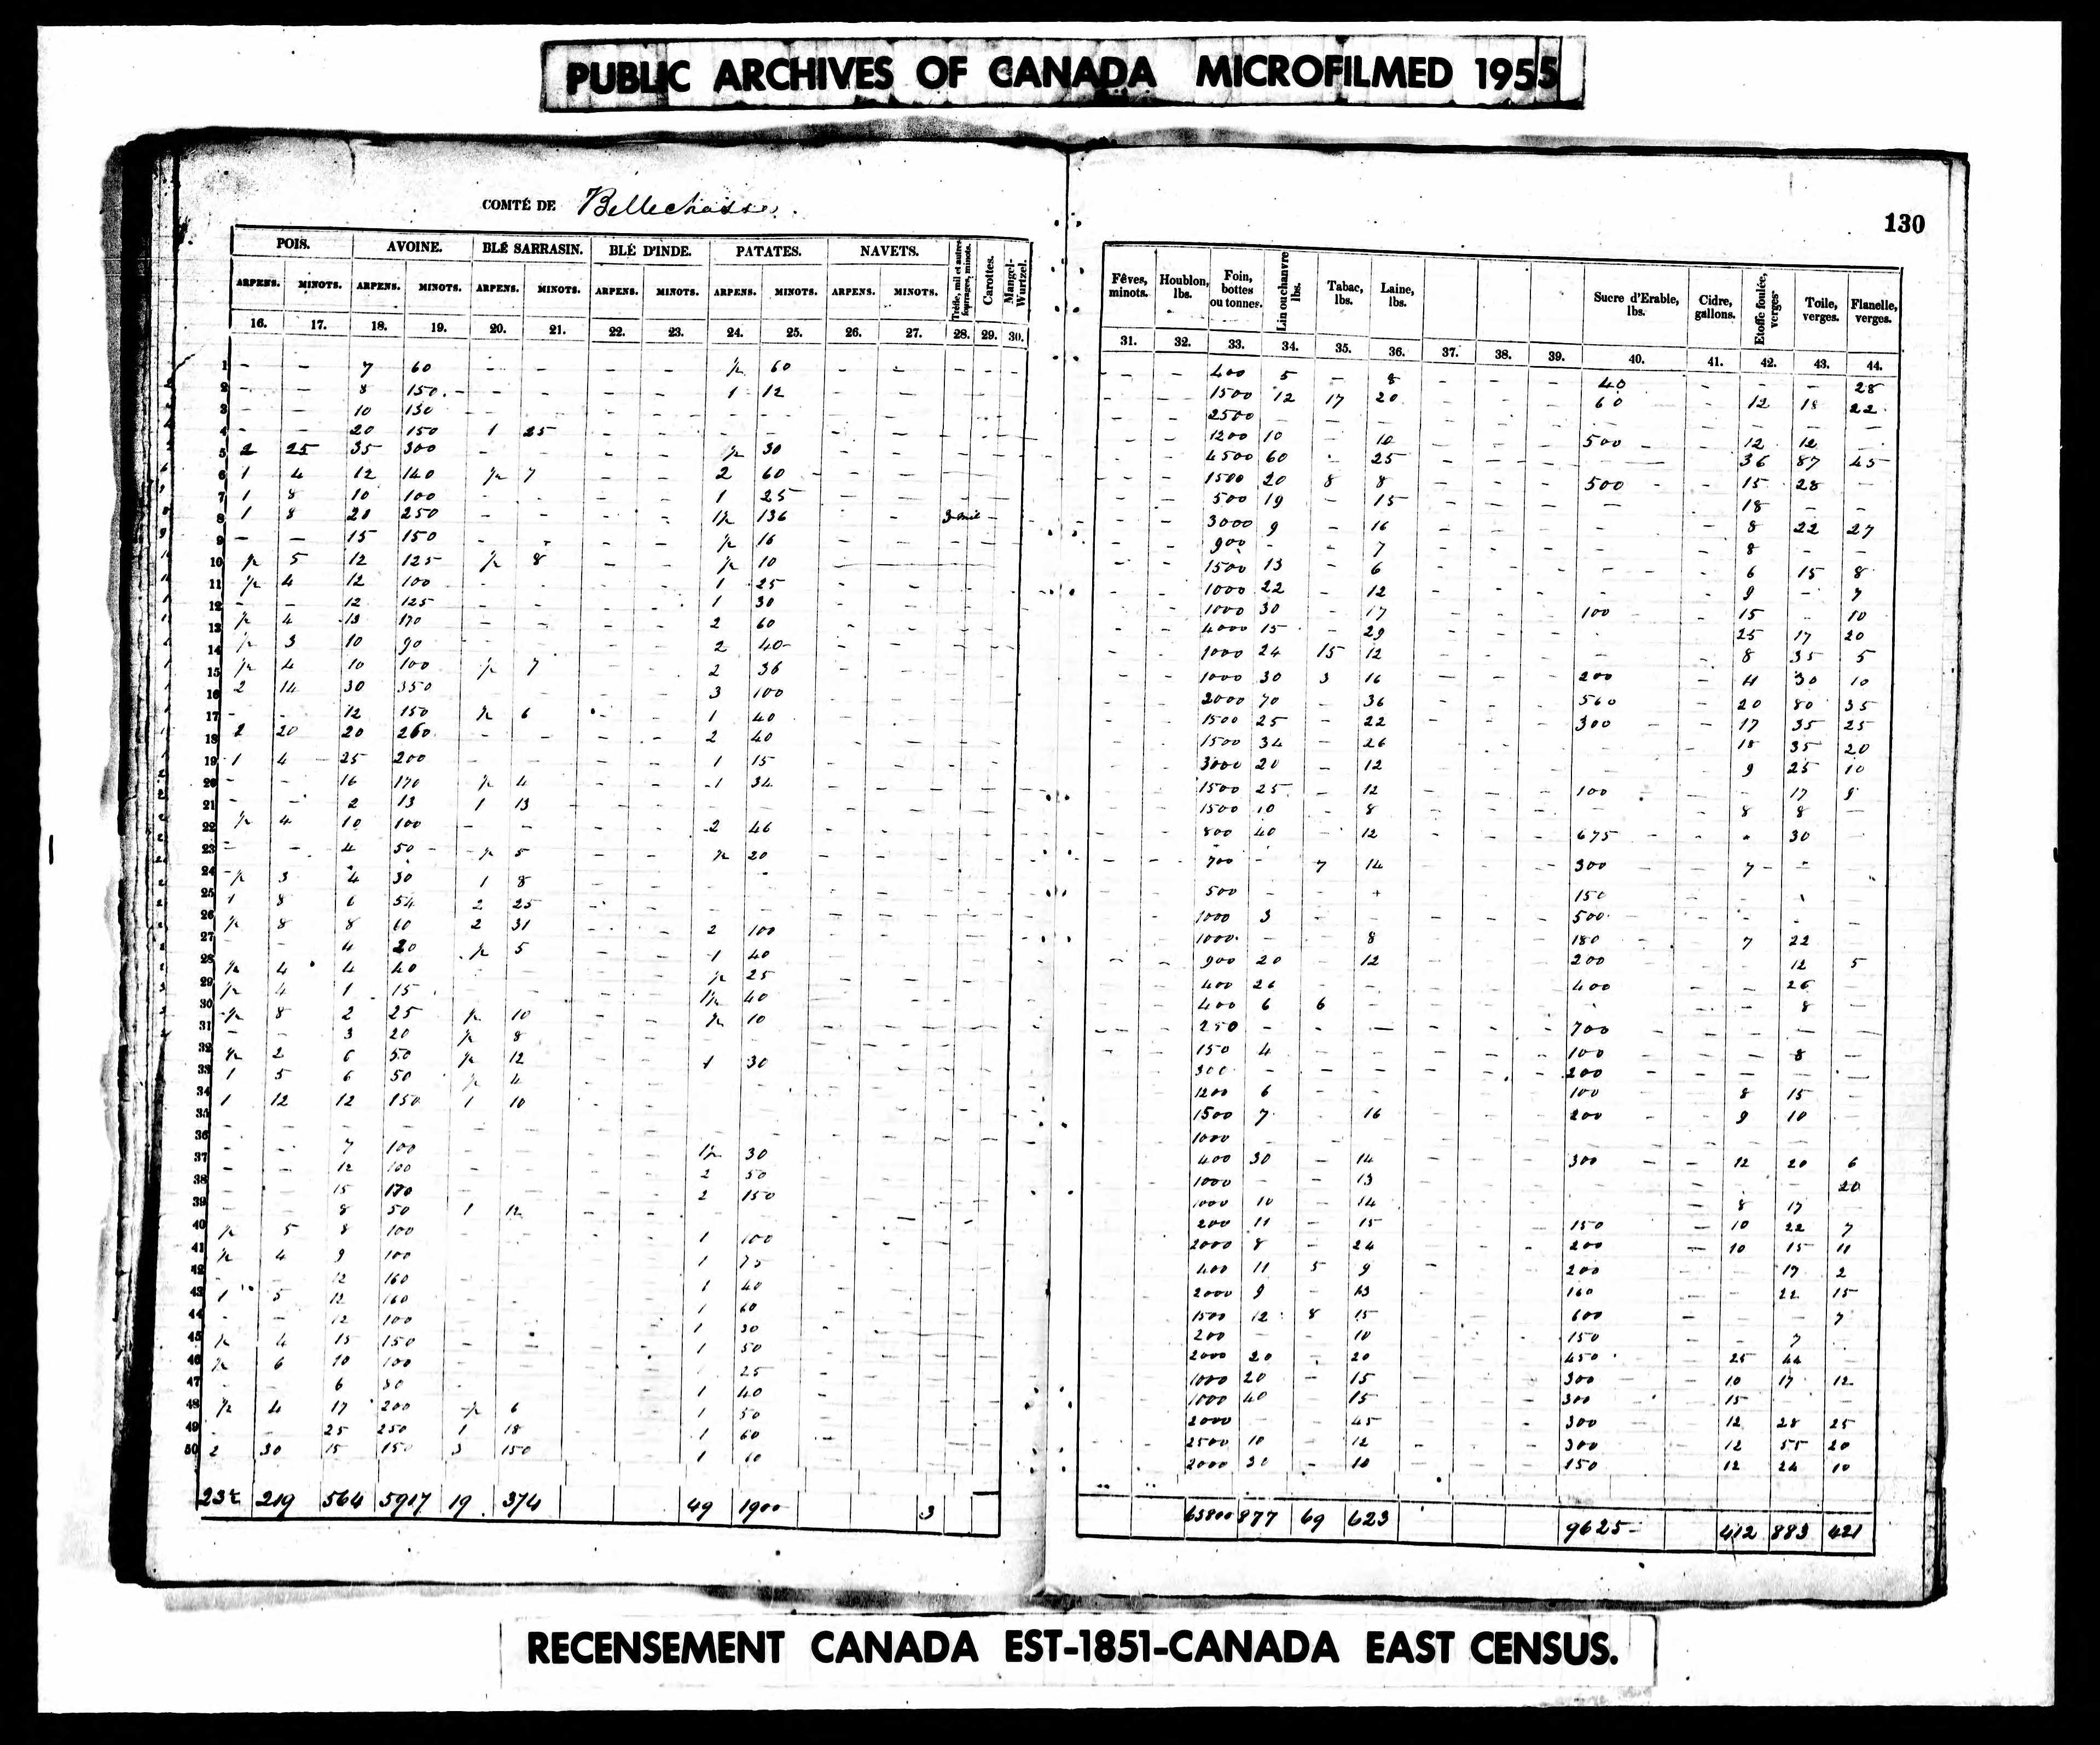 PUBLIC ARCHIVES OF CANADA MICROFILMED 1955
COMTÉ DE Bellechasse.
130
POIS. AVOINE. BLÉ SARRASIN. BLÉ D'INDE. PATATES. NAVETS. Trèfle, mil et autres fourrages, minots. Carottes. Mangel-Wurtzel.
ARPENS. MINOTS. ARPENS. MINOTS. ARPENS. MINOTS. ARPENS. MINOTS. ARPENS. MINOTS. ARPENS. MINOTS.
16. 17. 18. 19. 20. 21. 22. 23. 24. 25. 26. 27. 28. 29. 30.
Fêves, minots. Houblon, lbs. Foin, bottes ou tonnes. Lin ou chanvre lbs. Tabac, lbs. Laine, lbs. Sucre d'Erable, lbs. Cidre, gallons. Etoffe foulée, verges. Toile, verges. Flanelle, verges.
31. 32. 33. 34. 35. 36. 37. 38. 39. 40. 41. 42. 43. 44.
1 - - 7 60 - - - - ½ 60 - - - - -
2 - - 8 150 - - - - 1 12
3 - - 10 130 - - - -
4 - - 20 150 1 25 - -
5 2 25 35 300 - - - - ½ 30
6 1 4 12 140 ½ 7 - - 2 60
7 1 8 10 100 - - - - 1 25
8 1 8 20 250 - - - - 1½ 136 - - 3 mil
9 - - 15 150 - - - - ½ 16
10 ½ 5 12 125 ½ 8 - - ½ 10
11 ½ 4 12 100 - - - - 1 25
12 - - 12 125 - - - - 1 30
13 ½ 4 13 170 - - - - 2 60
14 ½ 3 10 90 - - - - 2 40
15 ½ 4 10 100 ½ 7 - - 2 36
16 2 14 30 350 - - - - 3 100
17 - - 12 150 ½ 6 - - 1 40
18 2 20 20 260 - - - - 2 40
19 1 4 25 200 - - - - 1 15
20 - - 16 170 ½ 4 - - 1 34
21 - - 2 13 1 13 - -
22 ½ 4 10 100 - - - - 2 46
23 - - 4 50 ½ 5 - - ½ 20
24 ½ 3 4 30 1 8
25 1 8 6 54 2 25
26 ½ 8 8 60 2 31 - - 2 100
27 - - 4 20 ½ 5 - - 1 40
28 ½ 4 4 40 - - - - ½ 25
29 ½ 4 1 15 - - - - 1½ 40
30 ½ 8 2 25 ½ 10 - - ½ 10
31 - - 3 20 ½ 8
32 ½ 2 6 50 ½ 12 - - 1 30
33 1 5 6 50 ½ 4
34 1 12 12 150 1 10
35 - - - -
36 - - 7 100 - - - - 1½ 30
37 - - 12 100 - - - - 2 50
38 - - 15 170 - - - - 2 150
39 - - 8 50 1 12
40 ½ 5 8 100 - - - - 1 100
41 ½ 4 9 100 - - - - 1 75
42 - - 12 160 - - - - 1 40
43 1 5 12 160 - - - - 1 60
44 - - 12 100 - - - - 1 30
45 ½ 4 15 150 - - - - 1 50
46 ½ 6 10 100 - - - - 25
47 - - 6 80 - - - - 1 40
48 ½ 4 17 200 ½ 6 - - 1 50
49 - - 25 250 1 18 - - 1 60
50 2 30 15 150 3 150 - - 1 60
219 564 5917 19 374 49 1900 3
400 5 - 8 - - - 40 - - - 28
1500 12 17 20 - - - 60 - 12 18 22
2500 - - - - - -
1200 10 - 10 - - - 500 - 12 12 -
4500 60 - 25 - - - - - 36 87 45
1500 20 8 8 - - - 500 - 15 28 -
500 19 - 15 - - - - - 18 - -
3000 9 - 16 - - - - - 8 22 27
900 - - 7 - - - - - 8 - -
1500 13 - 6 - - - - - 6 15 8
1000 22 - 12 - - - - - 9 - 7
1000 30 - 17 - - - 100 - 15 - 10
4000 15 - 29 - - - - 25 17 20
1000 24 15 12 - - - - - 8 35 5
1000 30 3 16 - - - 200 - 11 30 10
2000 70 - 36 - - - 560 - 20 80 35
1500 25 - 22 - - - 300 - 17 35 25
1500 34 - 26 - - - - - 18 35 20
3000 20 - 12 - - - - - 9 25 10
1500 25 - 12 - - - 100 - - 17 9
1500 10 - 8 - - - - - 8 8
800 40 - 12 - - - 675 - - 30 -
700 - 7 14 - - - 300 - 7 - -
500 - - - 150
1000 3 - - - - - 500
1000 - - 8 - - - 180 - 7 22
900 20 - 12 - - - 200 - - 12 5
400 26 - - - - - 400 - - 26 -
400 6 6 - - - - - - 8 -
250 - - - - - - 700 - - - -
150 4 - - - - - 100 - - 8 -
300 - - - - - - 200 - - - -
1200 6 - - - - - 100 - 8 15 -
1500 7 - 16 - - - 200 - 9 10 -
1000 - - -
400 30 - 14 - - - 300 - 12 20 6
1000 - - 13 - - - - - - - 20
1000 10 - 14 - - - - - 8 17 -
200 11 - 15 - - - 150 - 10 22 7
2000 8 - 24 - - - 200 - 10 15 11
400 11 5 9 - - - 200 - - 17 2
2000 9 - 13 - - - 160 - - 22 15
1500 12 8 15 - - - 600 - - - 7
200 - - 10 - - - 150 - - 7
2000 20 - 20 - - - 450 - 25 44 -
1000 20 - 15 - - - 300 - 10 17 12
1000 40 - 15 - - - 300 - 15 - -
2000 - - 45 - - - 300 - 12 28 25
2500 10 - 12 - - - 300 - 12 55 20
2000 30 - 10 - - - 150 - 12 24 10
63800 877 69 623 9625 412 883 421
RECENSEMENT CANADA EST-1851-CANADA EAST CENSUS.